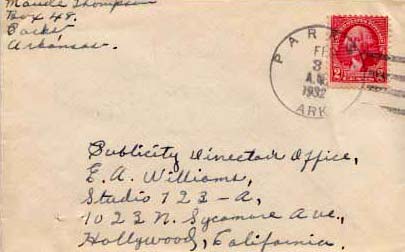 Maude Thompson
Box 48.
Parks,
Arkansas.
PARKS
FE
3
A.M.
1932
ARK
2 2
Publicity Director Office,
E. A. Williams,
Studio 123-A,
1023 N. Sycamore Ave.,
Hollywood, California.